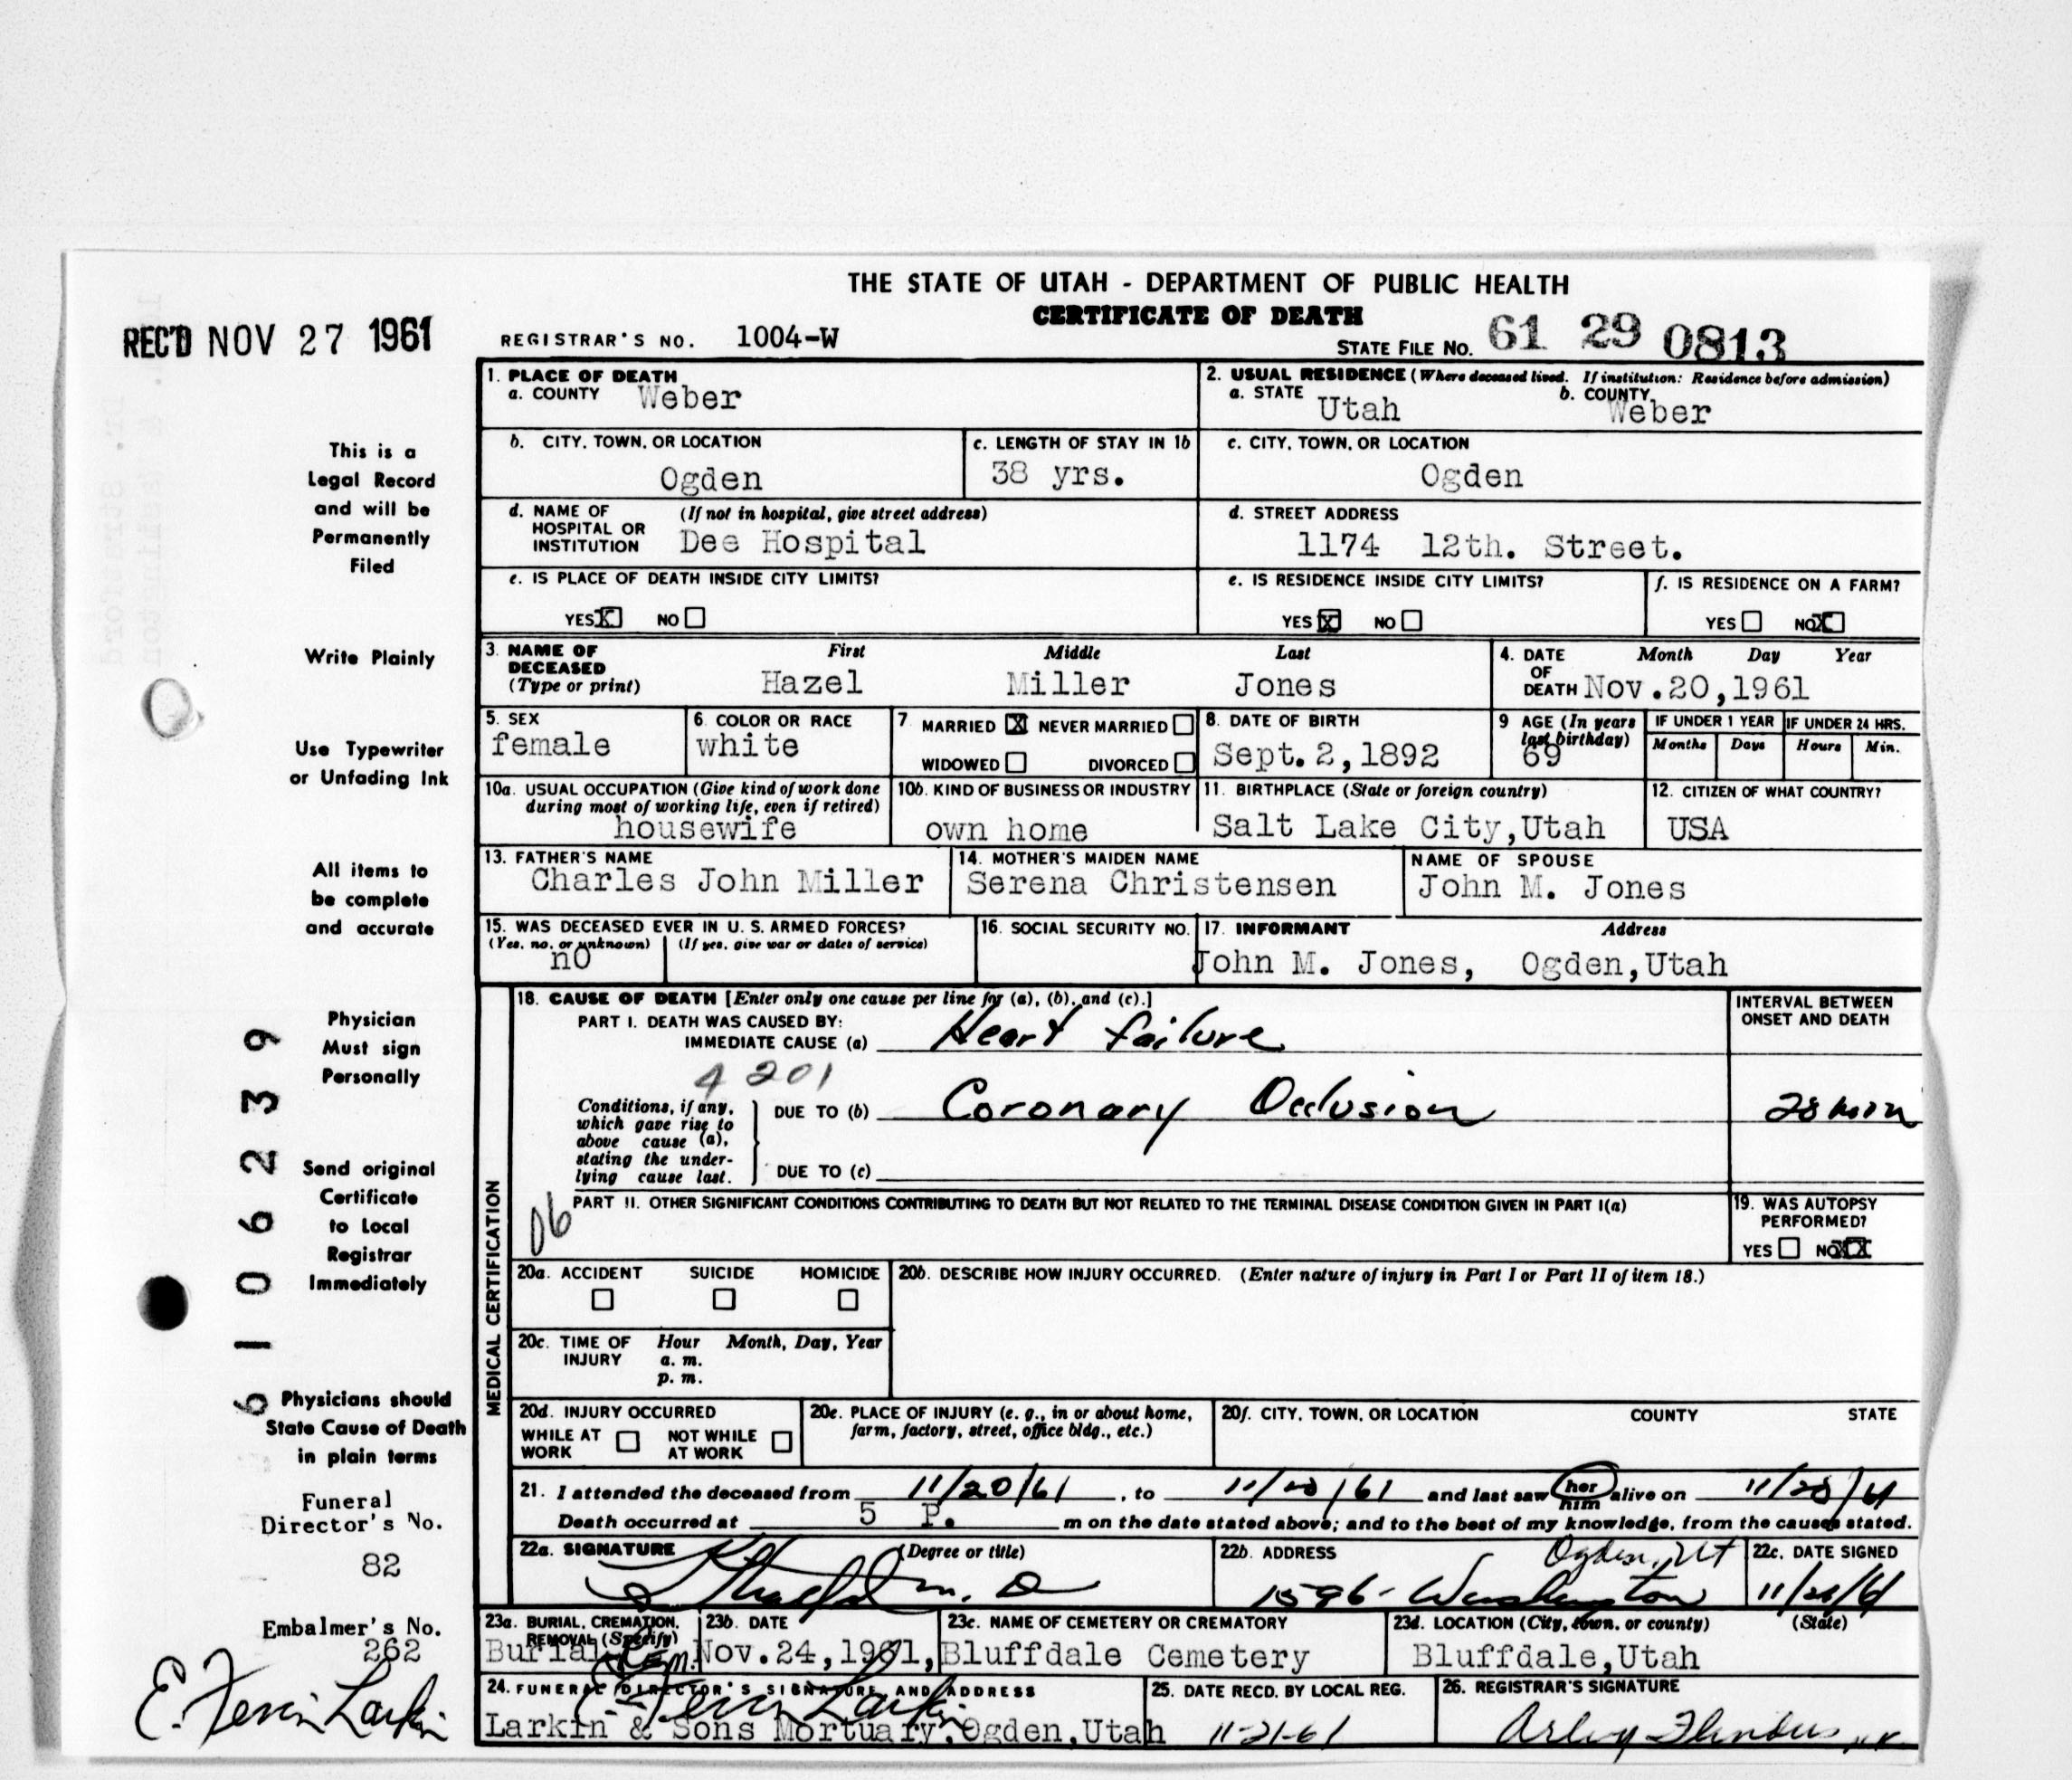 THE STATE OF UTAH - DEPARTMENT OF PUBLIC HEALTH
CERTIFICATE OF DEATH
REC'D NOV 27 1961
REGISTRAR'S NO. 1004-W
STATE FILE NO. 61 29 0813
1. PLACE OF DEATH
a. COUNTY Weber
2. USUAL RESIDENCE (Where deceased lived. If institution: Residence before admission)
a. STATE Utah b. COUNTY Weber
b. CITY, TOWN, OR LOCATION
Ogden
c. LENGTH OF STAY IN 1b
38 yrs.
c. CITY, TOWN, OR LOCATION
Ogden
d. NAME OF HOSPITAL OR INSTITUTION (If not in hospital, give street address)
Dee Hospital
d. STREET ADDRESS
1174 12th. Street.
e. IS PLACE OF DEATH INSIDE CITY LIMITS?
YES X NO
e. IS RESIDENCE INSIDE CITY LIMITS?
YES X NO
f. IS RESIDENCE ON A FARM?
YES NO X
3. NAME OF DECEASED (Type or print)
First Middle Last
Hazel Miller Jones
4. DATE OF DEATH Month Day Year
Nov.20,1961
5. SEX
female
6. COLOR OR RACE
white
7 MARRIED X NEVER MARRIED
WIDOWED DIVORCED
8. DATE OF BIRTH
Sept.2,1892
9 AGE (In years last birthday)
69
IF UNDER 1 YEAR
Months Days
IF UNDER 24 HRS.
Hours Min.
10a. USUAL OCCUPATION (Give kind of work done during most of working life, even if retired)
housewife
10b. KIND OF BUSINESS OR INDUSTRY
own home
11. BIRTHPLACE (State or foreign country)
Salt Lake City,Utah
12. CITIZEN OF WHAT COUNTRY?
USA
13. FATHER'S NAME
Charles John Miller
14. MOTHER'S MAIDEN NAME
Serena Christensen
NAME OF SPOUSE
John M. Jones
15. WAS DECEASED EVER IN U. S. ARMED FORCES?
(Yes, no, or unknown) (If yes, give war or dates of service)
nO
16. SOCIAL SECURITY NO.
17. INFORMANT Address
John M. Jones, Ogden,Utah
MEDICAL CERTIFICATION
18. CAUSE OF DEATH [Enter only one cause per line for (a), (b), and (c).]
INTERVAL BETWEEN ONSET AND DEATH
PART I. DEATH WAS CAUSED BY:
IMMEDIATE CAUSE (a) Heart failure
4201
Conditions, if any, which gave rise to above cause (a), stating the underlying cause last.
DUE TO (b) Coronary Occlusion
DUE TO (c)
06
PART II. OTHER SIGNIFICANT CONDITIONS CONTRIBUTING TO DEATH BUT NOT RELATED TO THE TERMINAL DISEASE CONDITION GIVEN IN PART I(a)
19. WAS AUTOPSY PERFORMED?
YES NO X
20a. ACCIDENT SUICIDE HOMICIDE
20b. DESCRIBE HOW INJURY OCCURRED. (Enter nature of injury in Part I or Part II of item 18.)
20c. TIME OF INJURY Hour Month, Day, Year
a. m.
p. m.
20d. INJURY OCCURRED
WHILE AT WORK NOT WHILE AT WORK
20e. PLACE OF INJURY (e. g., in or about home, farm, factory, street, office bldg., etc.)
20f. CITY, TOWN, OR LOCATION COUNTY STATE
21. I attended the deceased from 11/20/61, to 11/20/61 and last saw her him alive on 11/20/61
Death occurred at 5 P. m on the date stated above; and to the best of my knowledge, from the causes stated.
22a. SIGNATURE (Degree or title)
22b. ADDRESS
Ogden, Ut
Washington
22c. DATE SIGNED
23a. BURIAL, CREMATION, REMOVAL (Specify)
Burial Rem.
23b. DATE
Nov.24,1961,
23c. NAME OF CEMETERY OR CREMATORY
Bluffdale Cemetery
23d. LOCATION (City, town, or county) (State)
Bluffdale,Utah
24. FUNERAL DIRECTOR'S SIGNATURE AND ADDRESS
E. Ferrin Larkin
Larkin & Sons Mortuary,Ogden,Utah
25. DATE RECD. BY LOCAL REG.
11-21-61
26. REGISTRAR'S SIGNATURE
This is a
Legal Record
and will be
Permanently
Filed
Write Plainly
Use Typewriter
or Unfading Ink
All items to
be complete
and accurate
Physician
Must sign
Personally
Send original
Certificate
to Local
Registrar
Immediately
Physicians should
State Cause of Death
in plain terms
61 06239
Funeral
Director's No.
82
Embalmer's No.
262
E. Ferrin Larkin